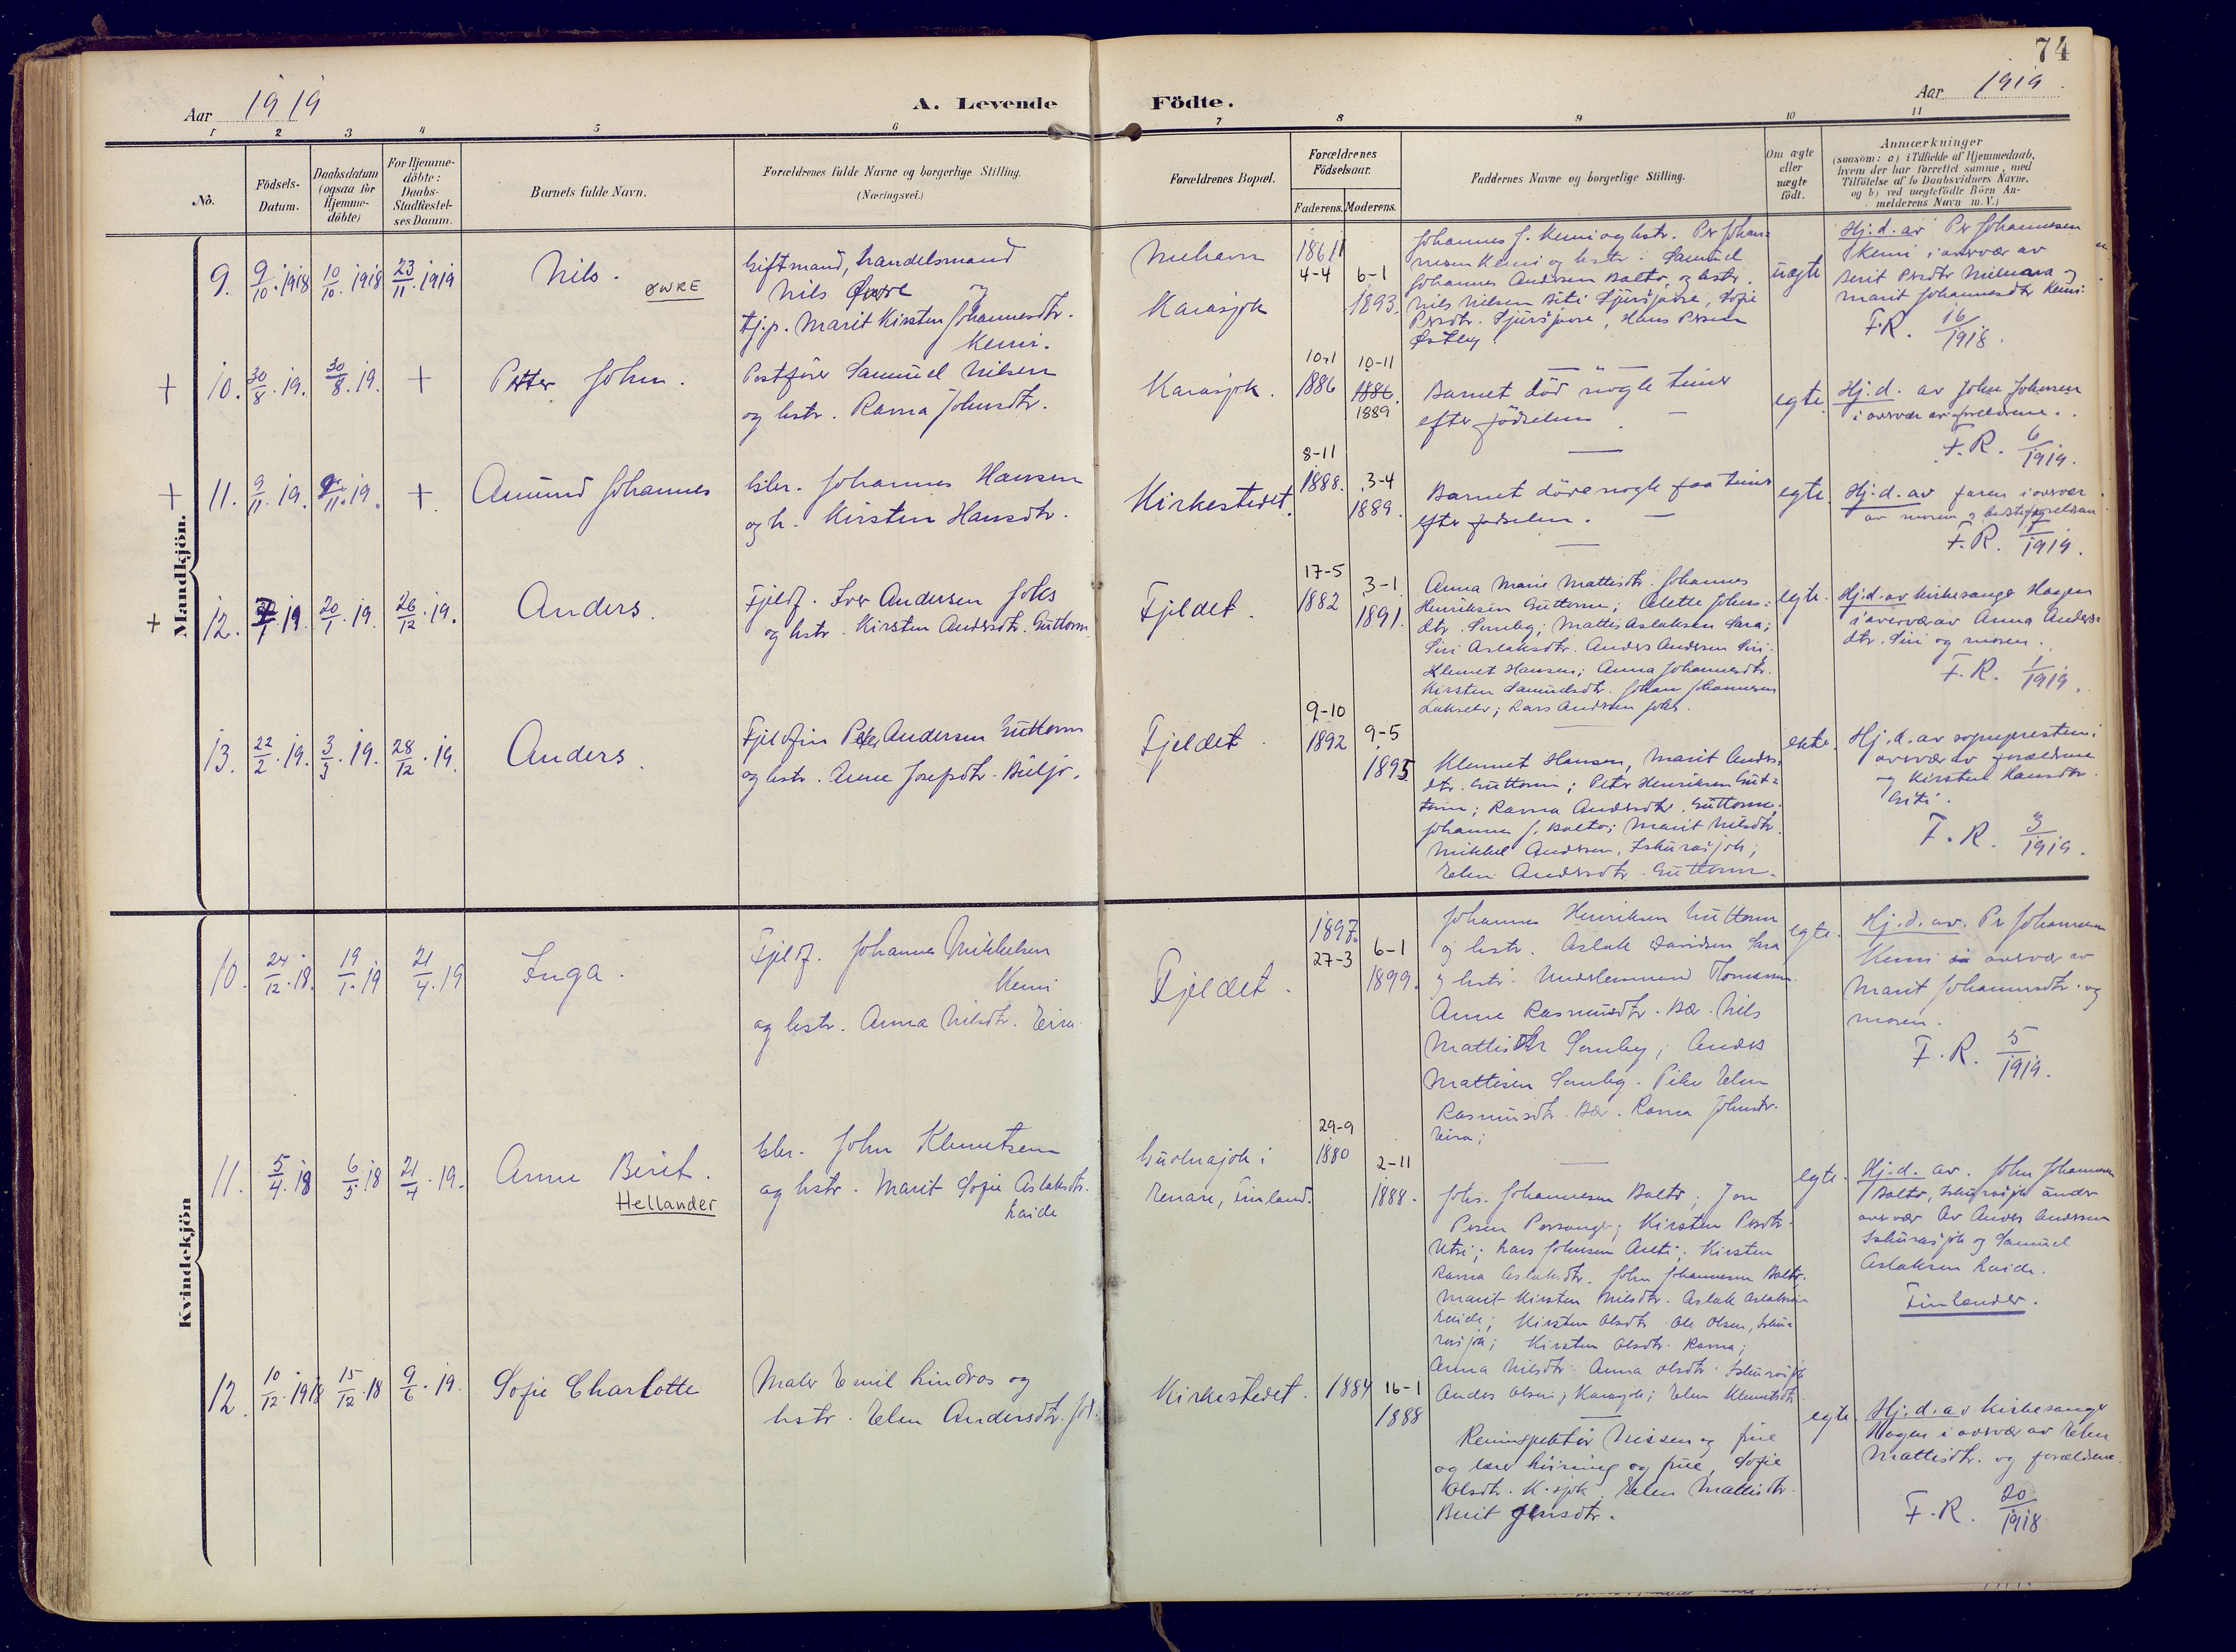 74
Aar 1919
A. Levende Födte.
Aar 1919.
1 2 3 4 5 6 7 8 9 10 11
No.
Födsels-Datum.
Daabsdatum (ogsaa for Hjemme-döbte)
For Hjemme-döbte: Daabs-Stadfæstel-ses Datum.
Barnets fulde Navn.
Forældrenes fulde Navne og borgerlige Stilling.
(Næringsvei.)
Forældrenes Bopæl.
Forældrenes Födselsaar.
Faderens. Moderens.
Faddernes Navne og borgerlige Stilling.
Om ægte eller uægte födt.
Anmærkninger
(saasom: a) i Tilfælde af Hjemmedaab,
hvem der har forrettet samme, med
Tilföielse af to Daabsvidners Navne,
og b) ved uægtefödte Börn An-
melderens Navn m. V.)
Mandkjön.
9. 9/10.1918 10/10.1918 23/11.1919
Nils.
ØWRE
Giftmand, handelsmand
Nils Øwre og
tj.p. Marit Kirsten Johannesdtr.
Kemi.
Karasjok
1861
4-4 6-1
1893.
Johannes J. Kemi og hstr. Per Johan-
nesen Kemi og hstr. Samuel
Johannes Andersen Balto, og hstr.
Nils Nilsen
Østby
uægte
Hj.d. av Per Johannesen
Kemi i overvær av
Berit Persdtr
Marit Johannesdtr Kemi.
F.R. 16/1918.
+ 10. 30/8.19. 30/8.19. +
Petter John.
Postfører Samuel Nilsen
og hstr. Ravna Johnsdtr.
Karasjok.
10-1 10-11
1886 1886.
1889
Barnet död nogle timer
efter födselen.
egte.
Hj.d. av John Johnsen
i overvær av forældrene.
F.R. 6/1919.
+ 11. 9/11.19. 9/11.19. +.
Amund Johannes
Gbr. Johannes Hansen
og h. Kirsten Hansdtr.
Kirkestedet.
8-11
1888. 3-4
1889.
Barnet döde nogle faa timer
efter fødselen.
egte.
Hj.d. av faren i overvær
av moren og bedsteforældrene
F.R. 7/1919.
+ 12. 1.19 20/1.19. 26/12.19.
Anders.
Fjeldf. Iver Andersen Joks
og hstr. Kirsten Andersdtr. Guttorm.
Fjeldet.
17-5 3-1
1882 1891.
Anna Marie Mattisdtr. Johannes
Henriksen Guttorm; Alette Johns-
dtr. Somby; Mattis Aslaksen Sara;
Siri Aslaksdtr. Anders Andersen Siri.
Klemet Hansen; Anna Johannesdtr.
Kirsten Samuelsdtr. Johan Johannesen
Lakselv; Lars Andersen Joks.
egte.
Hj.d. av kirkesanger Haagen
i overvær av Anna Anders-
dtr. Siri og moren.
F.R. 1/1919.
13. 22/2.19. 3/3.19. 28/12.19.
Anders
Fjeldfin Peter Andersen Guttorm
og hstr. Anne Josepsdtr. Buljo.
Fjeldet.
9-10 9-5
1892 1895
Klemet Hansen, Marit Anders-
dtr. Guttorm; Peter Henriksen Gut-
torm; Ravna Andersdtr. Guttorm;
Johannes J. Balto; Marit Nilsdtr.
Mikkel Andersen, Iskurasjok;
Elen Andersdtr. Guttorm.
ekte.
Hj.d. av sognepresten i
overvær av forældrene
og Kirsten Hansdtr.
F.R. 3/1919.
Kvindekjön
10. 24/12.18. 19/1.19 21/4.19
Inga.
Fjeldf. Johannes Mikkelsen
Kemi
og hstr. Anna Nilsdtr. Eira.
Fjeldet.
1897.
27-3 6-1
1899.
Johannes Henriksen Guttorm
og hstr. Aslak Davidsen Sara
og hstr. Underlensmand Thomassen.
Anne Rasmusdtr. Bær. Nils
Mattisdtr Somby; Anders
Mattisen Somby. Elen
Rasmusdtr. Bær. Ravna Johnsdtr.
Eira;
egte.
Hj.d. av. Per Johannesen
Kemi i overvær av
Marit Johannesdtr. og
moren.
F.R. 5/1919.
11. 5/4.18 6/5.18 21/4.19.
Anne Berit.
Hellander
Gbr. John Klemetsen
og hstr. Marit Sofie Aslaksdtr.
Laide
i
Enare, Finland.
29-9
1880 2-11
1888.
Johs. Johannesen Balto; Jon
Persen Porsanger; Kirsten Persdtr.
Utsi; Lars Johnsen Anti; Kirsten
Ravna Aslaksdtr. John Johannesen Balto.
Marit Kirsten Nilsdtr. Aslak Aslaksen
Laide; Kirsten Olsdtr. Ole Olsen, Isku-
rasjok; Kirsten Olsdtr. Ravna;
Anna Nilsdtr. Anna Olsdtr. Iskurasjok
Anders Olsen, Karasjok; Elen Klemetsdtr.
egte.
Hj.d. av. John Johannesen
Balto, Iskurasjok under
overvær av Anders Andersen
Iskurasjok og Samuel
Aslaksen Laide.
Finlænder.
12. 10/12.1918 15/12.18 9/6.19.
Sofie Charlotte
Maler Emil Lindros og
hstr. Elen Andersdtr.
Kirkestedet.
1884 16-1
1888
Nissen og frue
og lærer og frue, Sofie
Olsdtr. K.sjok. Elen Mattisdtr.
Berit Jensdtr.
egte.
Hj.d. av kirkesanger
Hagen i overvær av Elen
Mattisdtr. og forældrene.
F.R. 20/1918